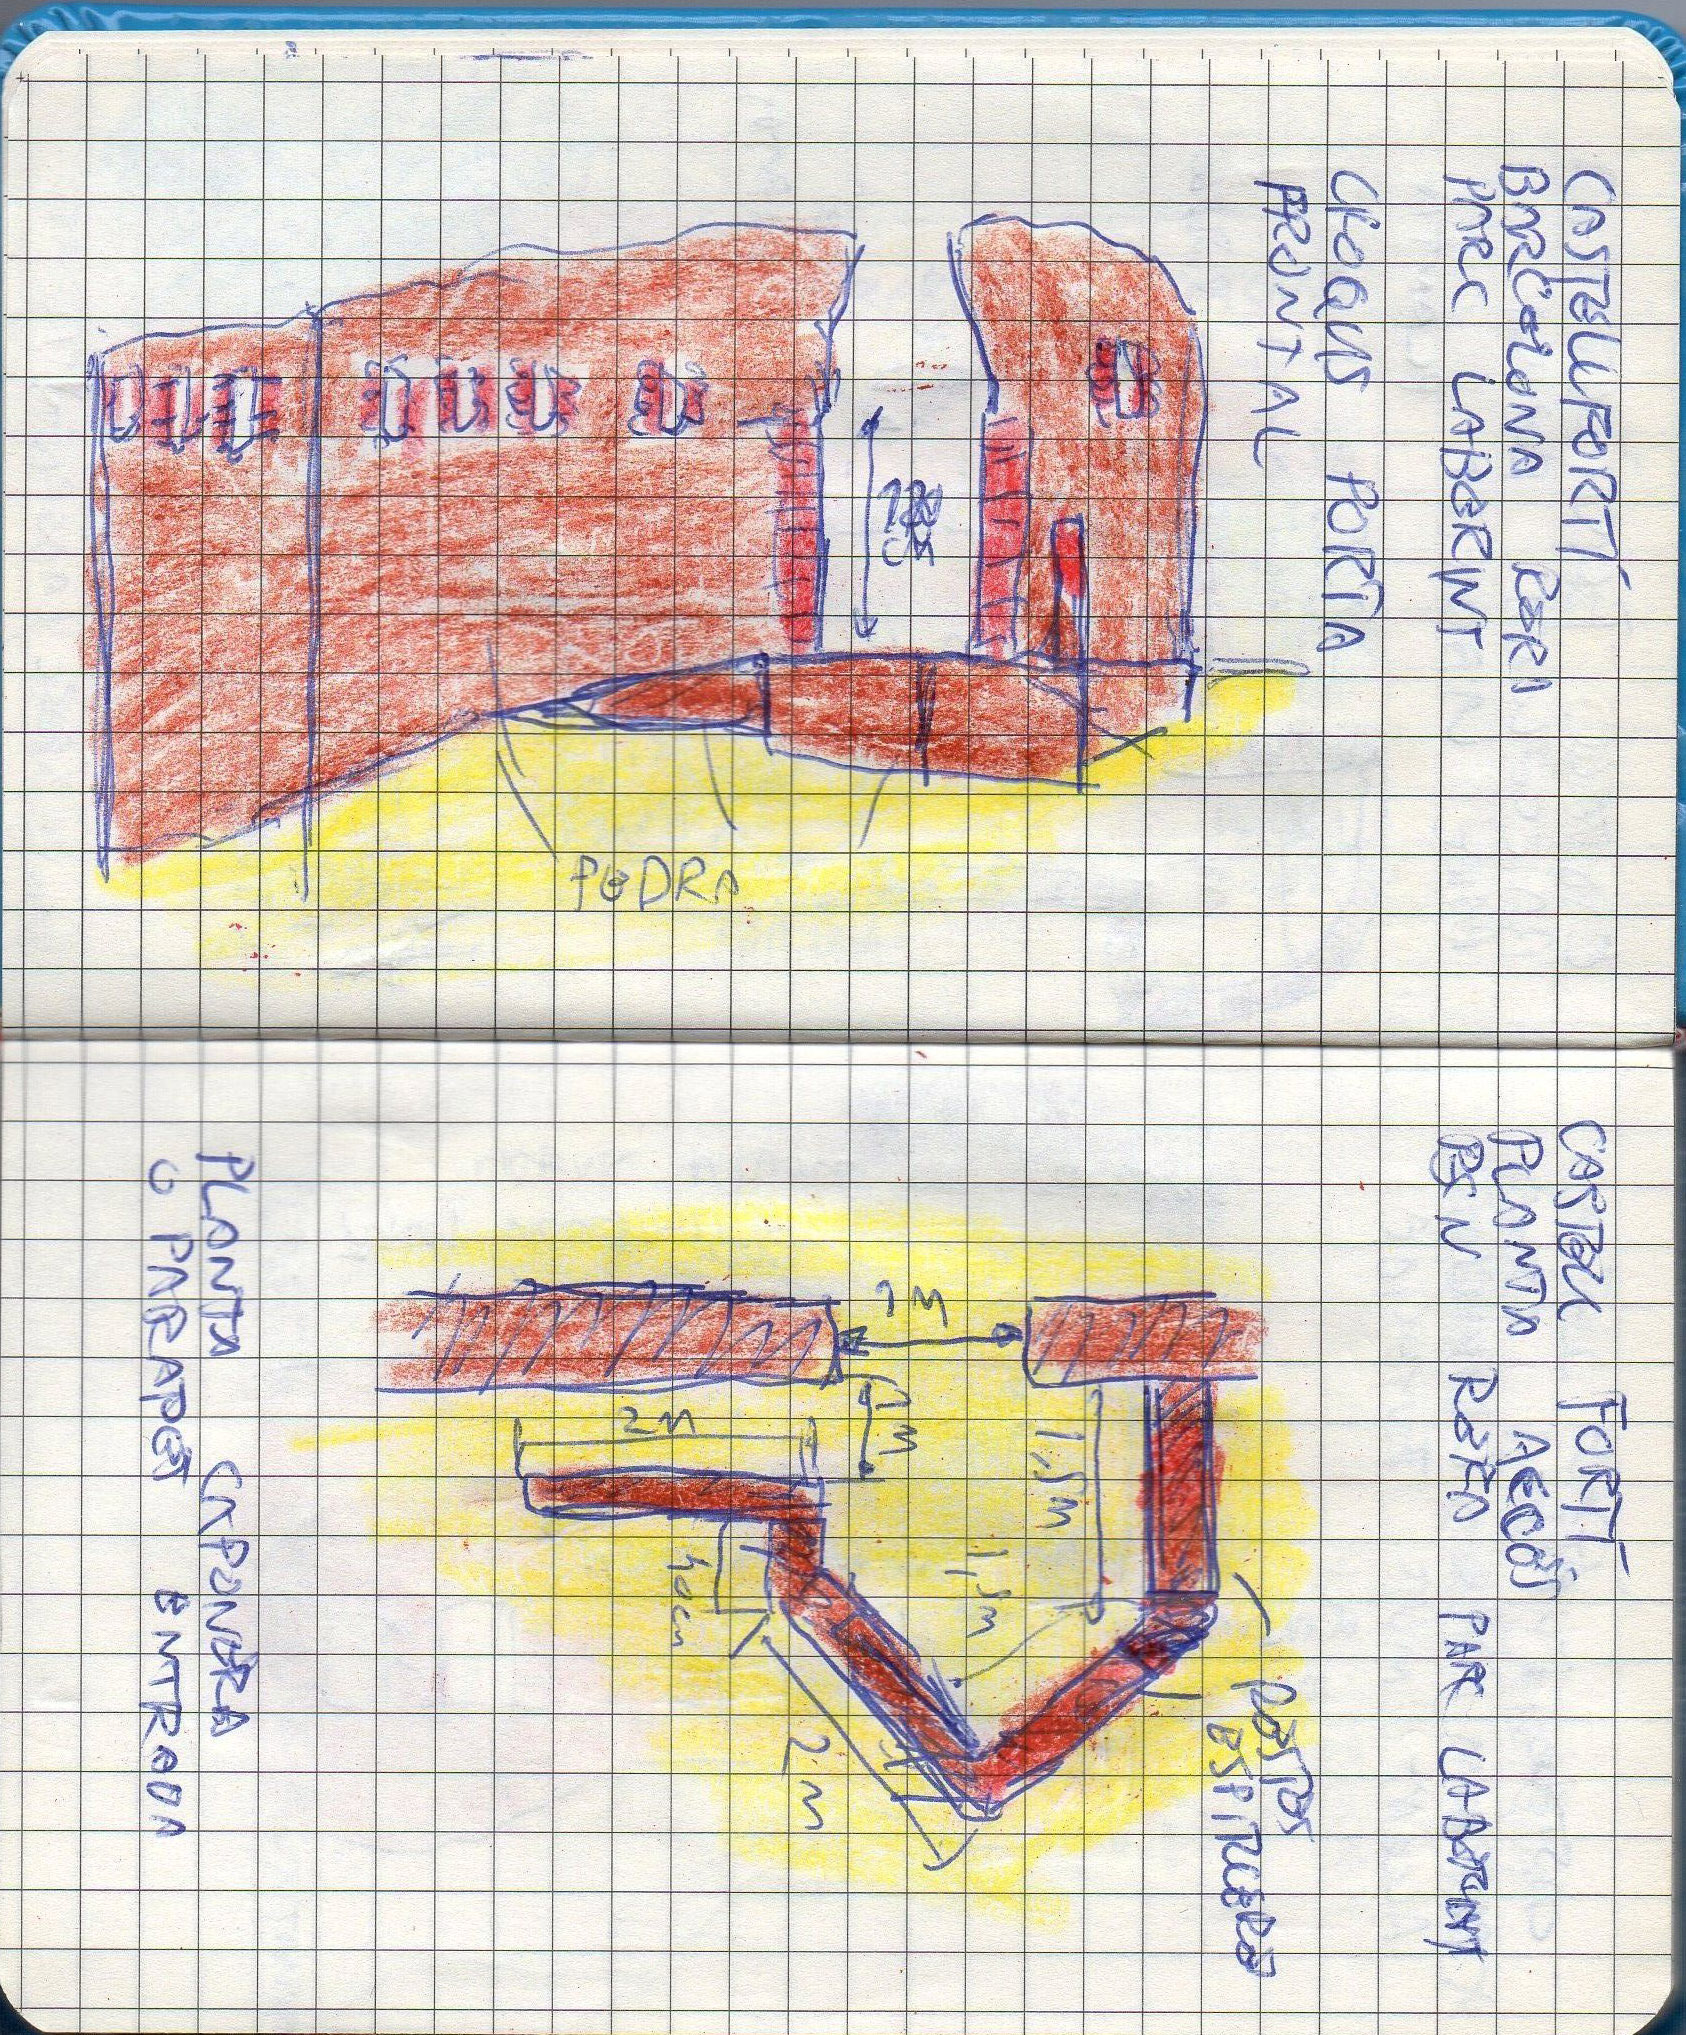 CASTELLFORTÍ
BARCELONA
PARC LABERINT
CROQUIS PORTA
FRONTAL
180
CM
PEDRA
CASTELL FORTÍ
PLANTA ACCÉS
PARC LABERINT
1 M
1 M
2 M
1,5 M
1,5 M
40 CM
2 M
ESPITLLERA
PLANTA CAPONERA
O PARAPET ENTRADA